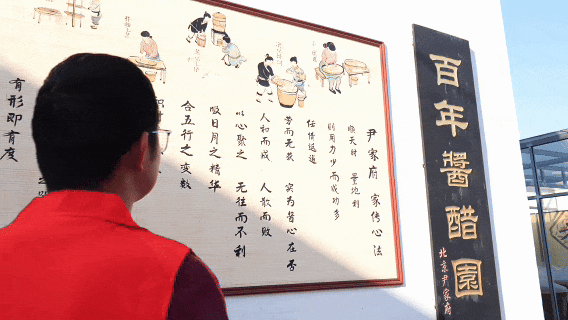 百年醬醋園
北京尹家府
尹家府 家传心法
顺天时 量地利
则用力少而成功多
任情返道
劳而无获 实为酱心在否
人和而成 人散而败
以心聚之 无往而不利
吸日月之精华
合五行之变数
有形即有度